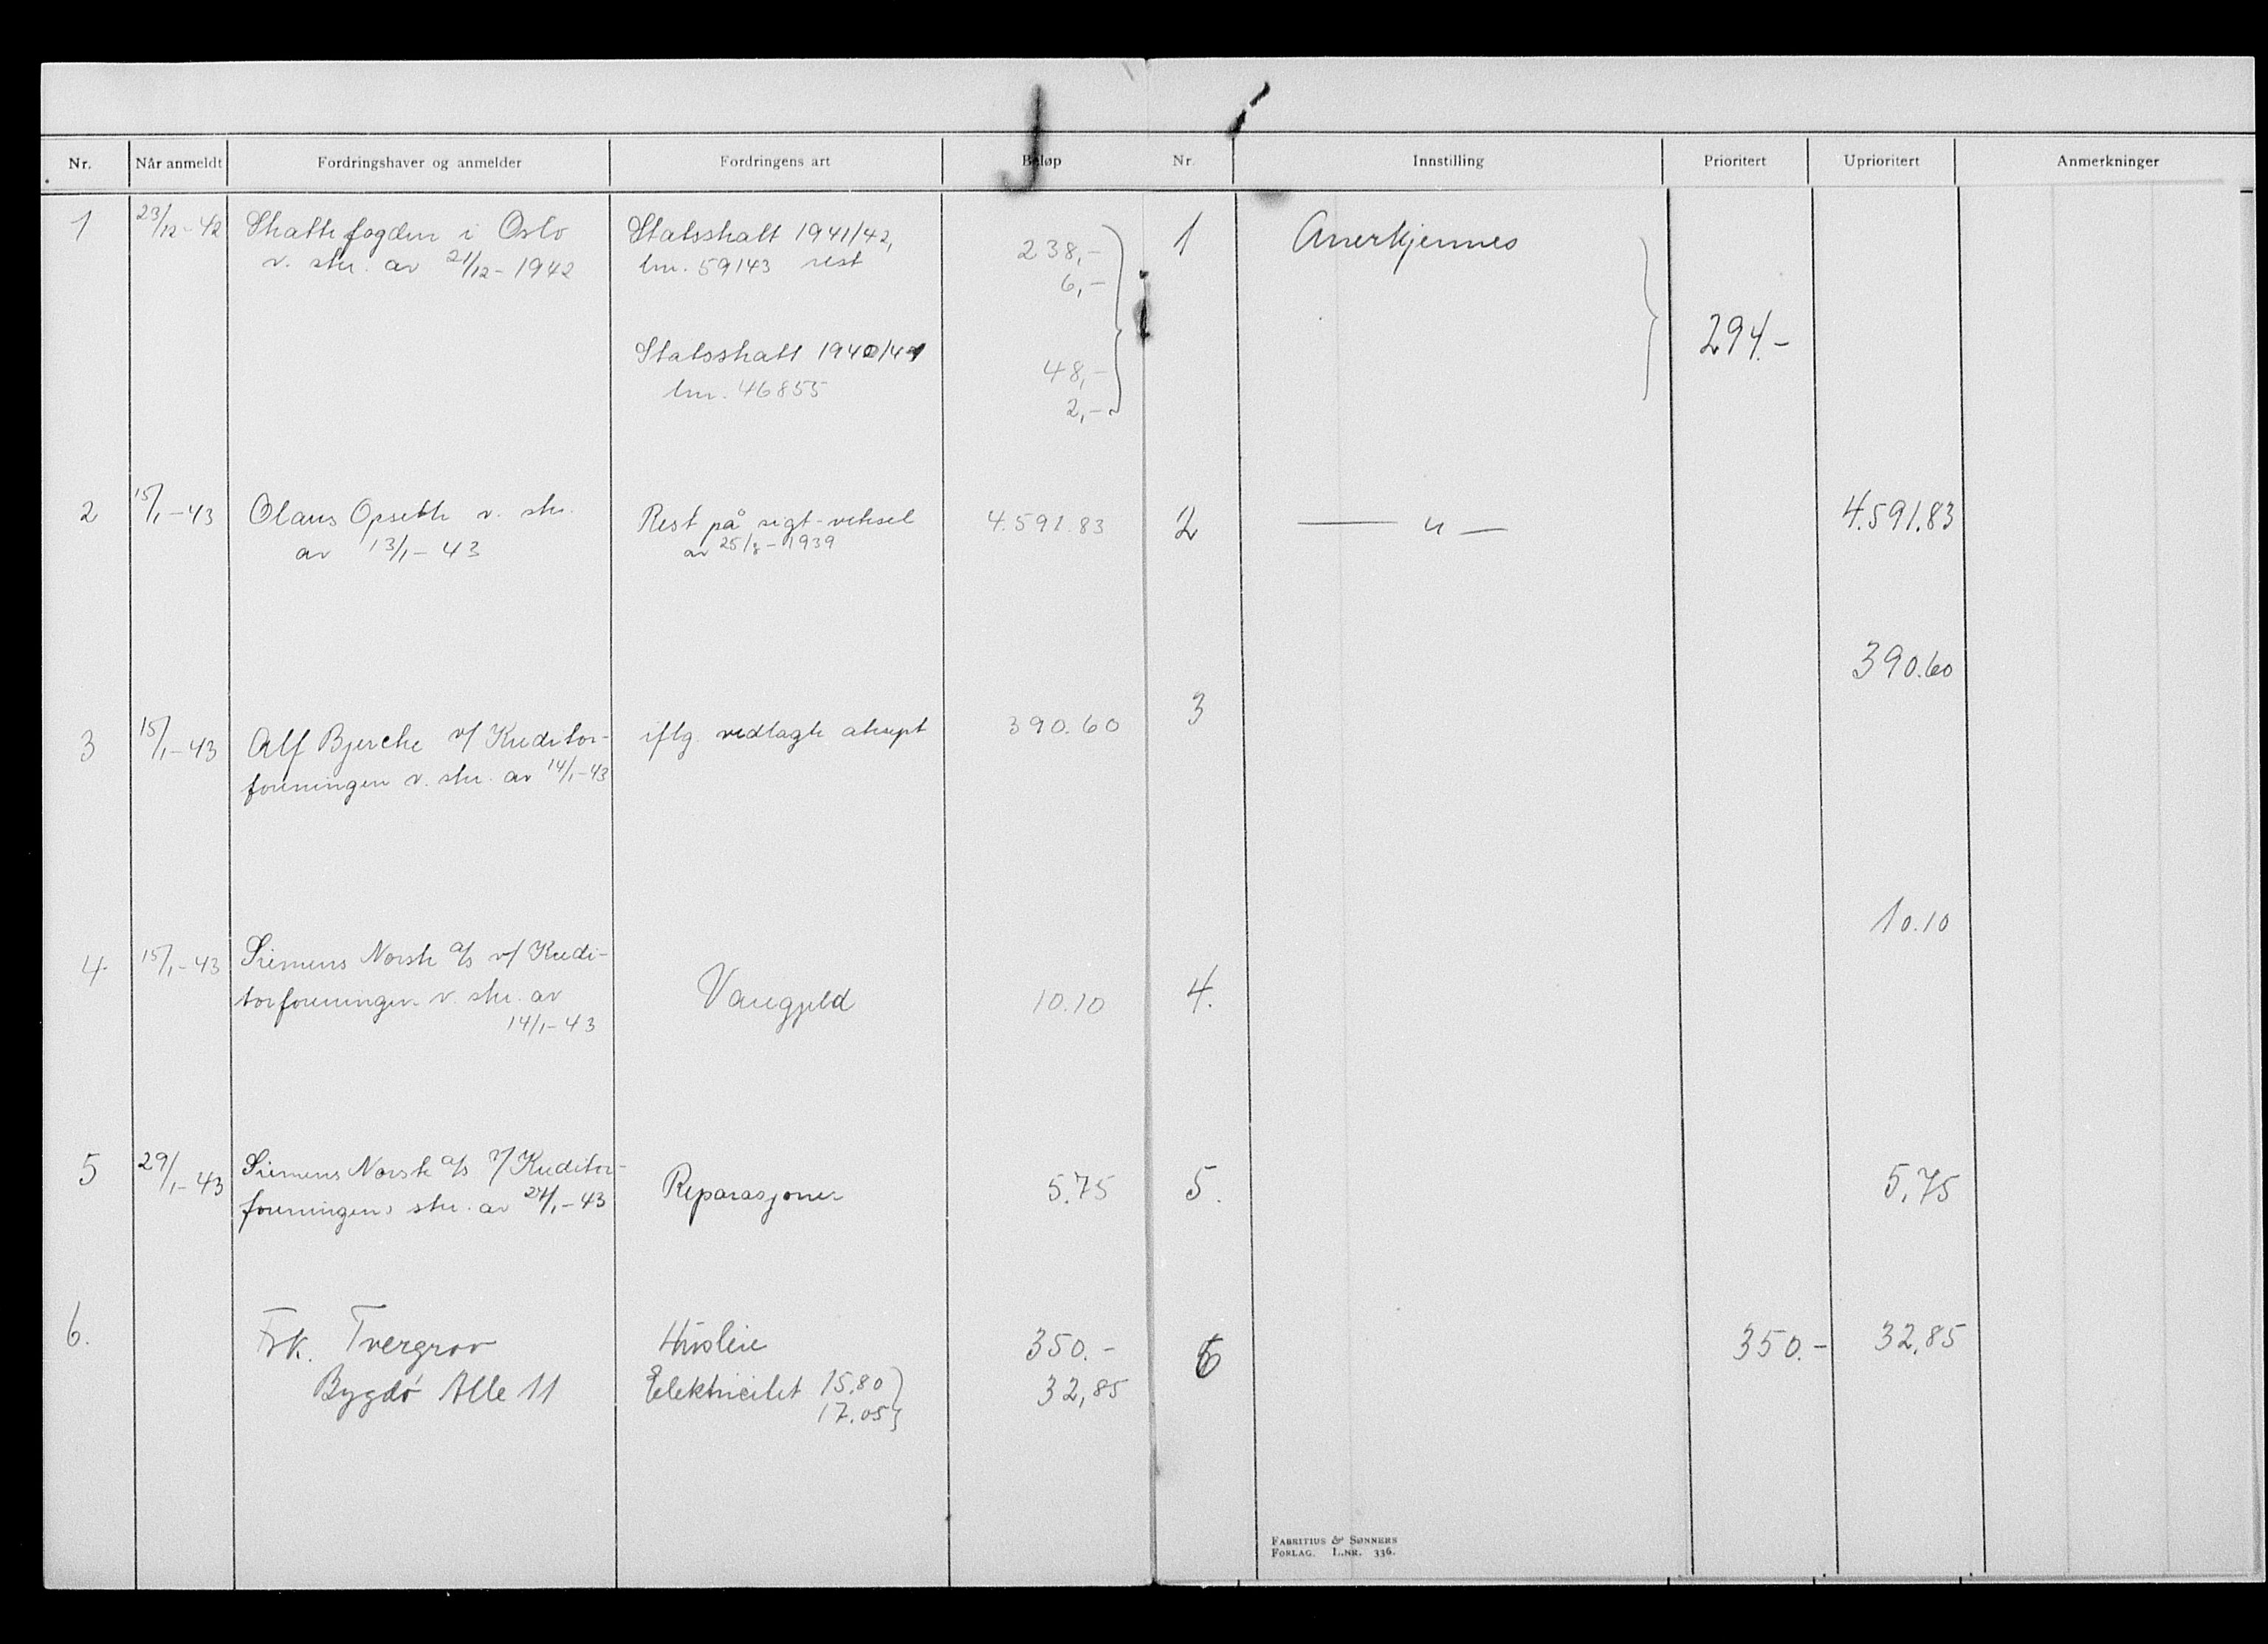 Nr. Når anmeldt Fordringshaver og anmelder Fordringens art Beløp Nr. Innstilling Prioritert Uprioritert Anmerkninger
1 23/12-42 Skattefogden i Oslo Statsskatt 1941/42, 238,- 1 Anerkjennes
v. skr. av 21/12-1942 lnr. 59143 rest 6,-
294.-
Statsskatt 1940/41 48,-
lnr. 46855 2,-
2 15/1-43 Olaus Opseth v. skr. Rest på sigt-veksel 4.591.83 2 — " — 4.591.83
av 13/1-43 av 25/8-1939
390.60
3 15/1-43 Alf Bjercke v/ Kreditor- iflg. vedlagte akcept 390.60 3
foreningen v. skr. av 14/1-43
10.10
4. 15/1-43 Siemens Norsk a/s v/ Kredi-
torforeningen v. skr. av Varegjeld 10.10 4.
14/1-43
5 29/1-43 Siemens Norsk a/s v/ Kreditor- Reparasjoner 5.75 5. 5.75
foreningens skr. av 27/1-43
6. Frk. Tvergrov Husleie 350.- 6 350.- 32,85
Bygdø Alle 11 Elektricitet 15.80 32,85
17.05
FABRITIUS & SØNNERS
FORLAG. L.NR. 336.